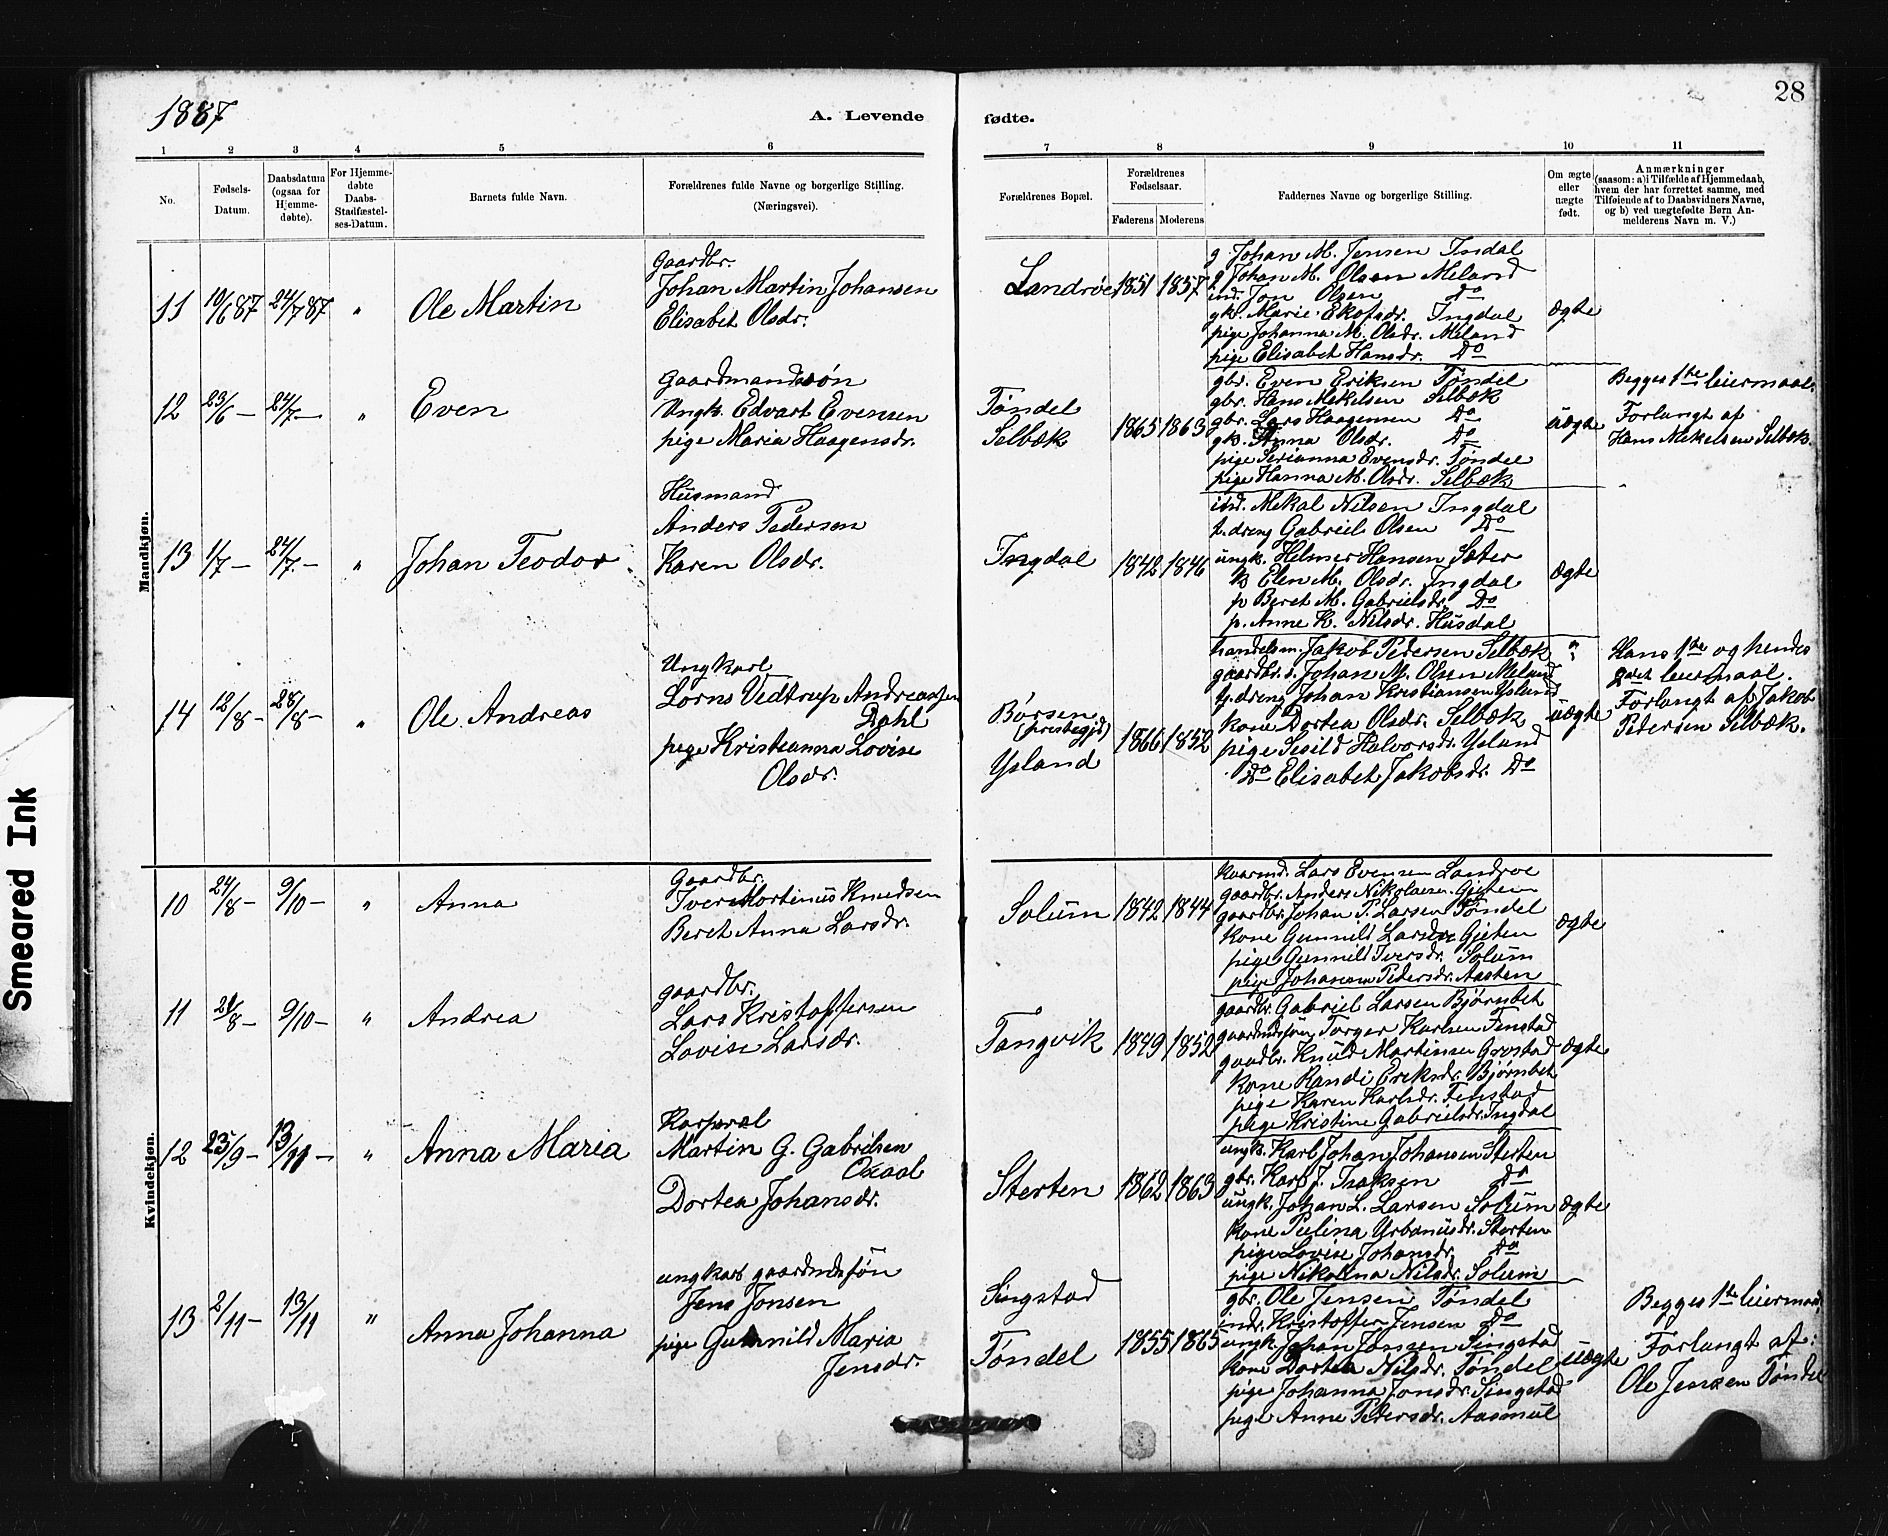 28
1887
A. Levende fødte.
1 2 3 4 5 6 7 8 9 10 11
No.
Fødsels-
Datum.
Daabsdatum
(ogsaa for
Hjemme-
døbte).
For Hjemme-
døbte
Daabs-
Stadfæstel-
ses-Datum.
Barnets fulde Navn.
Forældrenes fulde Navne og borgerlige Stilling.
(Næringsvei).
Forældrenes Bopæl.
Forældrenes
Fødselsaar.
Faderens Moderens
Faddernes Navne og borgerlige Stilling.
Om ægte
eller
uægte
født.
Anmærkninger
(saasom: a) i Tilfælde af Hjemmedaab,
hvem der har forrettet samme, med
Tilføiende af to Daabsvidners Navne,
og b) ved uægtefødte Børn An-
melderens Navn m. V.)
Mandkjøn.
11 19/6 87 24/7 87 " Ole Martin
Gaardbr.
Johan Martin Johansen
Elisabet Olsdr.
Landrøe 1851 1857
g. Johan M. Jensen Indal
g. Johan M. Olsen Meland
ind. Jon Olsen Do
gk. Marie Ekofsdr. Ingdal
pige Johanna M. Olsdr. Meland
pige Elisabet Hansdr. Do
ægte
12 23/6 — 24/7 — " Even
Gaardmandssøn
Ungk. Edvart Evensen
pige Maria Haagensdr.
Tøndel
Selbæk
1865 1863
gbr. Even Eriksen Tøndel
gbr. Hans Mekelsen Selbæk
gbr. Lars Haagensen Do
gk. Anna Olsdr. Do
pige Serianna Evensdr. Tøndel
pige Hanna M. Olsdr. Selbæk
uægte
Begges 1ste leiermaal.
Forlangt af
Hans Mekelsen Selbæk.
13 1/7 — 24/7 — " Johan Teodor
Husmand
Anders Pedersen
Karen Olsdr.
Ingdal 1842 1846
ind. Mekal Nilsen Ingdal
t. dreng Gabriel Olsen Do
ungk. Helmer Hansen Sæter
k Elen M. Olsdr. Ingdal
p Beret M. Gabrielsdr. Do
p. Anne K. Nilsdr. Husdal
ægte
14 12/8 — 28/8 — " Ole Andreas
Ungkarl
Lorns Vedtrup Andreassen
Dahl
pige Kristianna Lovise
Olsdr.
Børsen
(prestegjd)
Ysland
1866 1852
handelsm. Jakob Pedersen Selbæk
gaardbr.s. Johan M. Olsen Meland
t. dreng Johan Kristiansen Ysland
kone Dortea Olsdr. Selbæk
pige Sesild Halvorsdr. Ysland
Do Elisabet Jakobsdr. Do
uægte
Hans 1ste og hendes
2det leiermaal.
Forlangt af Jakob
Pedersen Selbæk.
Kvindekjøn.
10 24/8 — 9/10 — " Anna
Gaardbr.
Iver Mortinus Knudsen
Beret Anna Larsdr.
Solum 1842 1844
kaarmd. Lars Evensen Landroe
gaardbr. Anders Nikolaisen Gjeten
gaardbr. Johan P. Larsen Tøndel
kone Gunnild Larsdr Gjeten
pige Gunnild Iversdr. Solum
pige Johanna Pedersdr. Aasten
ægte
11 /8 — 9/10 — " Andrea
gaardbr.
Lars Kristoffersen
Lovise Larsdr.
Tangvik 1849 1852
gaardbr. Gabriel Larsen Bjørnbet
gaardmdssøn Torger Karlsen Fenstad
gaardbr. Knud Martinsen Grostad
kone Randi Eriksdr. Bjørnbet
pige Karen Karlsdr. Fenstad
pige Kristine Gabrielsdr. Ingdal
ægte
12 25/9 — 13/11 — " Anna Maria
Korporal
Martin G. Gabrilsen
Oxaal
Dortea Johansdr.
Sterten 1862 1863
ungk. Karl Johan Johansen Sterten
gbr. Karl J. Isaksen Do
ungk. Johan L. Larsen Solum
kone Pelina Urbanusdr. Sterten
pige Lovise Johansdr. Do
pige Nikolina Nilsdr. Solum
ægte
13 2/11 — 13/11 " Anna Johanna
ungkarl gaardmdssøn
Jens Jonsen
pige Gunnild Maria
Jensdr.
Singstad
Tøndel
1855 1865
gbr. Ole Jensen Tøndel
indr. Kristoffer Jensen Do
ungk. Johan Jonsen Singstad
kone Dortea Nilsdr. Tøndel
pige Johanna Jonsdr. Singstad
pige Anne Pedersdr. Aasmul
uægte
Begges 1ste leiermaal
Forlangt af:
Ole Jensen Tøndel
Smeared Ink